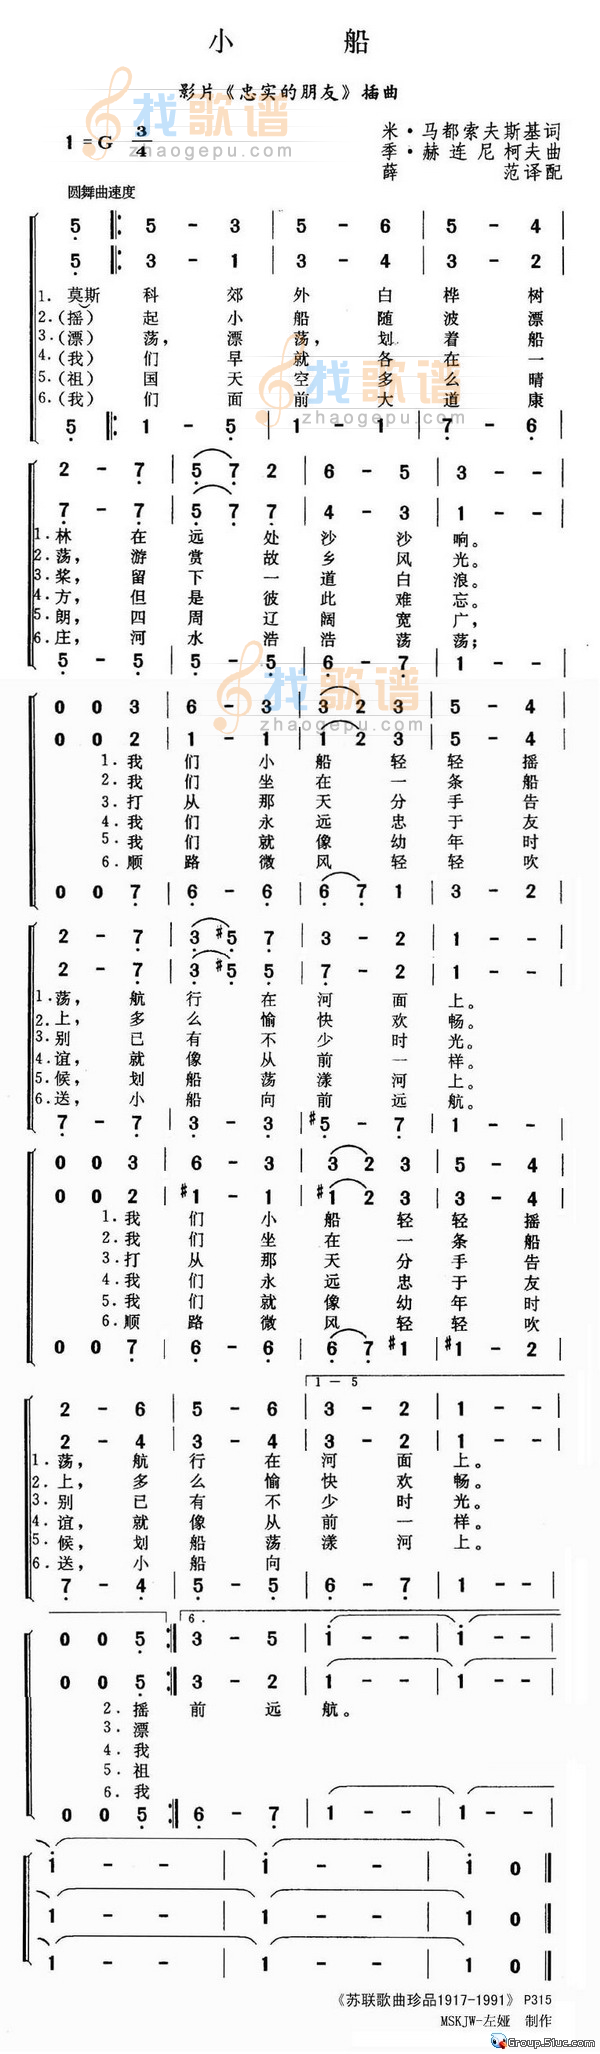 小 船
影片《忠实的朋友》插曲
1=G 3/4
米·马都索夫斯基词
季·赫连尼柯夫曲
薛 范译配
圆舞曲速度
找歌谱
zhaogepu.com
5 ‖: 5 - 3 | 5 - 6 | 5 - 4 |
5 ‖: 3 - 1 | 3 - 4 | 3 - 2 |
1. 莫斯 科 郊 外 白 桦 树
2.(摇) 起 小 船 随 波 漂
3.(漂) 荡, 漂 荡, 划 着 船
4.(我) 们 早 就 各 在 一
5.(祖) 国 天 空 多 么 晴
6.(我) 们 面 前 大 道 康
5 ‖: 1 - 5 | 1 - 1 | 7 - 6 |
2 - 7 | 5 7 2 | 6 - 5 | 3 - - |
7 - 7 | 5 7 7 | 4 - 3 | 1 - - |
1.林 在 远 处 沙 沙 响。
2.荡, 游 赏 故 乡 风 光。
3.桨, 留 下 一 道 白 浪。
4.方, 但 是 彼 此 难 忘。
5.朗, 四 周 辽 阔 宽 广,
6.庄, 河 水 浩 浩 荡 荡;
5 - 5 | 5 - 5 | 6 - 7 | 1 - - |
找歌谱
zhaogepu.com
0 0 3 | 6 - 3 | 3 2 3 | 5 - 4 |
0 0 2 | 1 - 1 | 1 2 3 | 5 - 4 |
1.我 们 小 船 轻 轻 摇
2.我 们 坐 在 一 条 船
3.打 从 那 天 分 手 告
4.我 们 永 远 忠 于 友
5.我 们 就 像 幼 年 时
6.顺 路 微 风 轻 轻 吹
0 0 7 | 6 - 6 | 6 7 1 | 3 - 2 |
2 - 7 | 3 #5 7 | 3 - 2 | 1 - - |
2 - 7 | 3 #5 5 | 7 - 2 | 1 - - |
1.荡, 航 行 在 河 面 上。
2.上, 多 么 愉 快 欢 畅。
3.别 已 有 不 少 时 光。
4.谊, 就 像 从 前 一 样。
5.候, 划 船 荡 漾 河 上。
6.送, 小 船 向 前 远 航。
7 - 7 | 3 - 3 | #5 - 7 | 1 - - |
0 0 3 | 6 - 3 | 3 2 3 | 5 - 4 |
0 0 2 | #1 - 1 | #1 2 3 | 3 - 4 |
1.我 们 小 船 轻 轻 摇
2.我 们 坐 在 一 条 船
3.打 从 那 天 分 手 告
4.我 们 永 远 忠 于 友
5.我 们 就 像 幼 年 时
6.顺 路 微 风 轻 轻 吹
0 0 7 | 6 - 6 | 6 7 #1 | #1 - 2 |
1 — 5
2 - 6 | 5 - 6 | 3 - 2 | 1 - - |
2 - 4 | 3 - 4 | 3 - 2 | 1 - - |
1.荡, 航 行 在 河 面 上。
2.上, 多 么 愉 快 欢 畅。
3.别 已 有 不 少 时 光。
4.谊, 就 像 从 前 一 样。
5.候, 划 船 荡 漾 河 上。
6.送, 小 船 向
7 - 4 | 5 - 5 | 6 - 7 | 1 - - |
6.
0 0 5 :‖ 3 - 5 | 1 - - | 1 - - |
0 0 5 :‖ 3 - 2 | 1 - - | 1 - - |
2.摇 前 远 航。
3.漂
4.我
5.祖
6.我
0 0 5 :‖ 6 - 7 | 1 - - | 1 - - |
1 - - | 1 - - | 1 0 ‖
1 - - | 1 - - | 1 0 ‖
1 - - | 1 - - | 1 0 ‖
《苏联歌曲珍品1917-1991》 P315
MSKJW-左娅 制作
Group.51uc.com